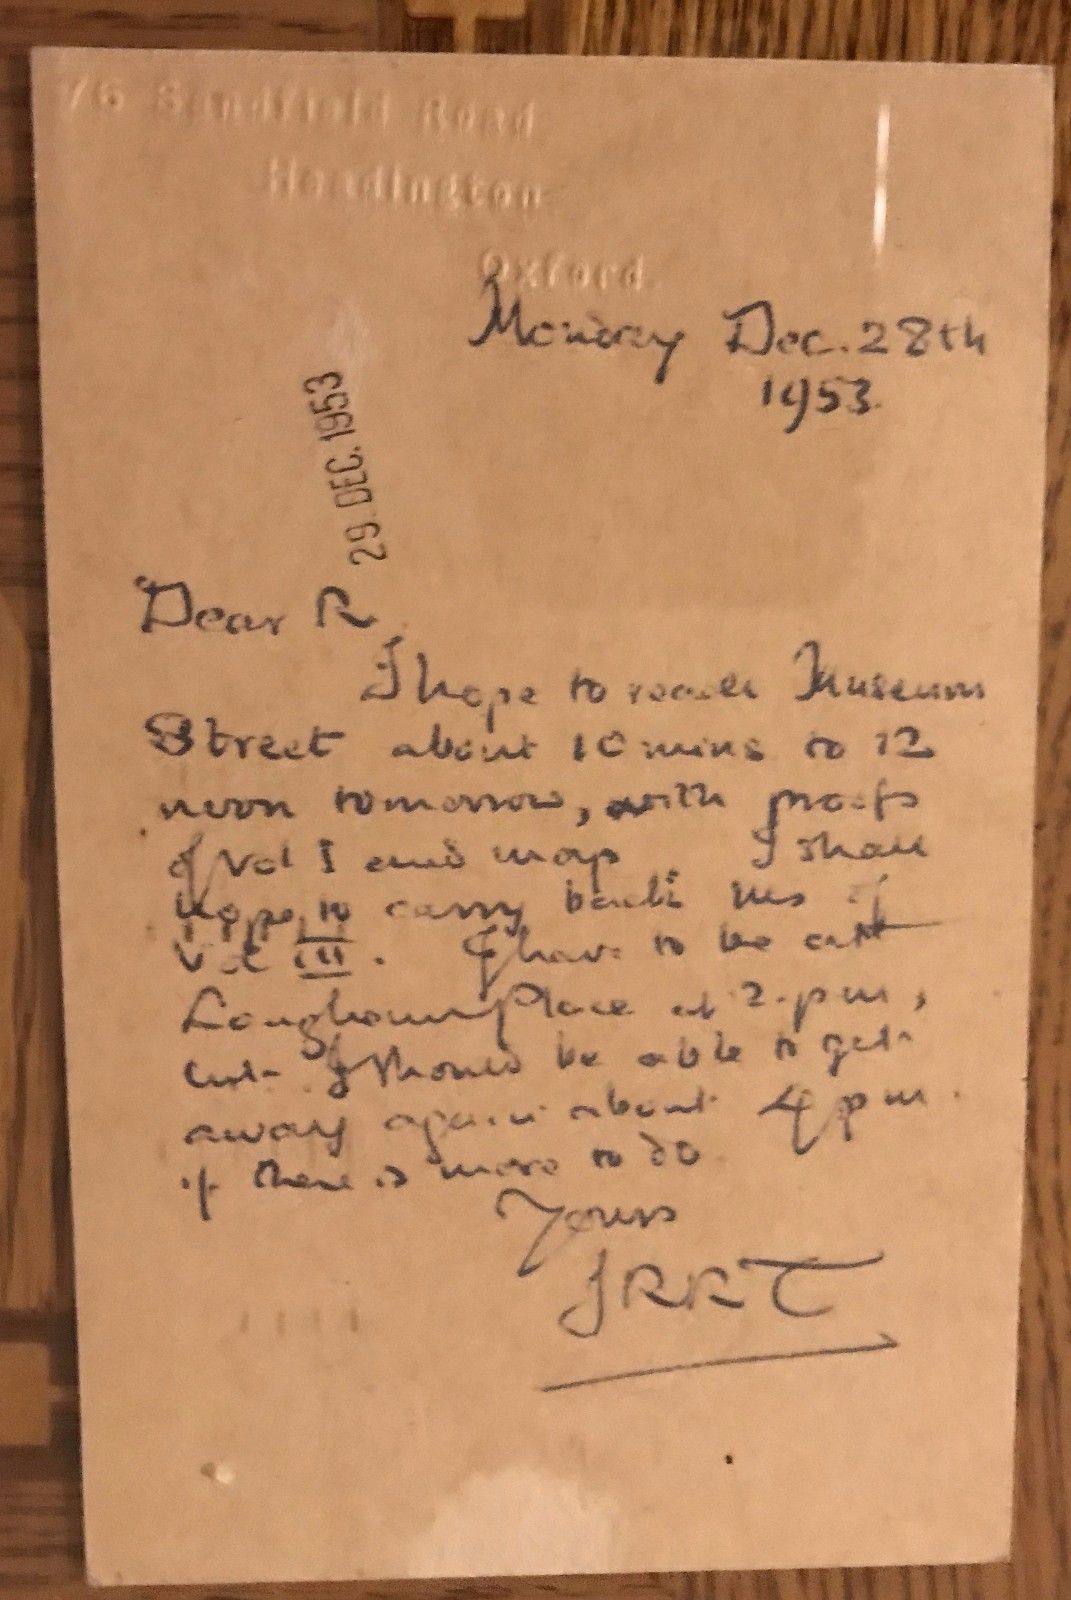 76 Sandfield Road
Headington
Oxford
Monday Dec. 28th
1953.
29. DEC. 1953
Dear R.
I hope to reach Museum
Street about 10 mins to 12
noon tomorrow, with proofs
of Vol I and map. I shall
hope to carry back MS of
Vol III. I have to be at
Langham Place at 2. pm,
but I should be able to get
away again about 4 pm.
if there is more to do
Yours
JRRT